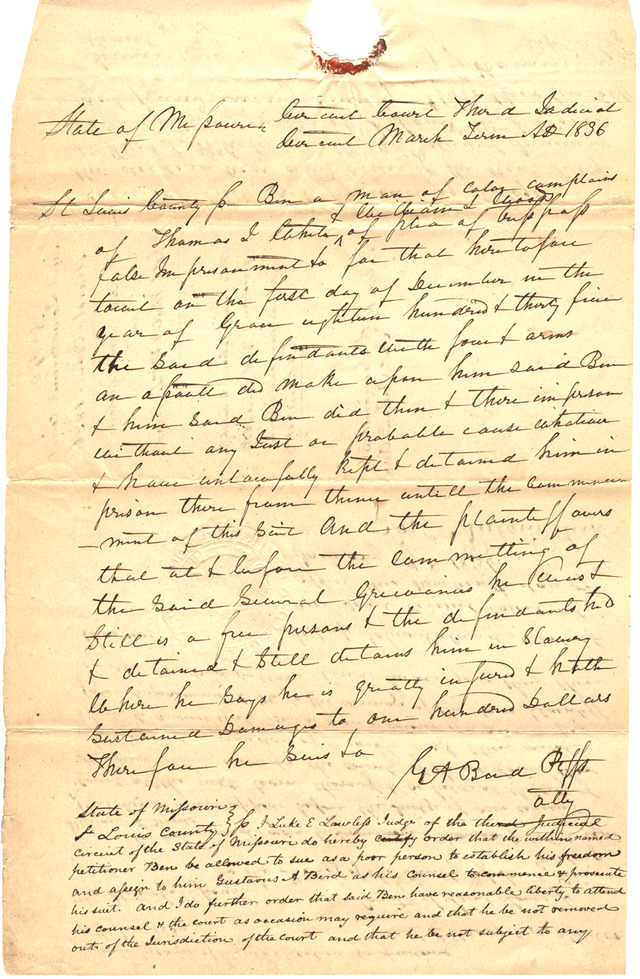 State of Missouri
Circuit Court Third Judicial
Circuit March Term AD 1836
St Louis County ss Ben a man of color complains
of Thomas J White & William L Woods of plea of trespass
false Imprisonment &c for that heretofore
towit on the first day of December in the
year of Grace eighteen hundred & thirty five
the said defendants with force & arms
an assault did make upon him said Ben
& him said Ben did then & there imprison
without any Just or probable cause whatever
& have unlawfully kept & detained him in
prison there from thence untill the commence
-ment of this Suit And the plaintiff avers
that at & before the committing of
the said several Grievances he was &
still is a free person & the defendants held
& detained & still detains him in Slavery
Where he says he is greatly injured & hath
sustained Damages to one hundred Dollars
Therefore he sues &c
G A Bird Plffs
atty
State of Missouri
St Louis County ss I Luke E Lawless Judge of the third judicial
circuit of the State of Missouri do hereby certify order that the within named
petitioner Ben be allowed to sue as a poor person to establish his freedom
and assign to him Gustavus A Bird as his Counsel to commence & prosecute
his suit. And I do further order that said Ben have reasonable liberty to attend
his counsel & the court as occasion may require and that he be not removed
out of the Jurisdiction of the court and that he be not subject to any